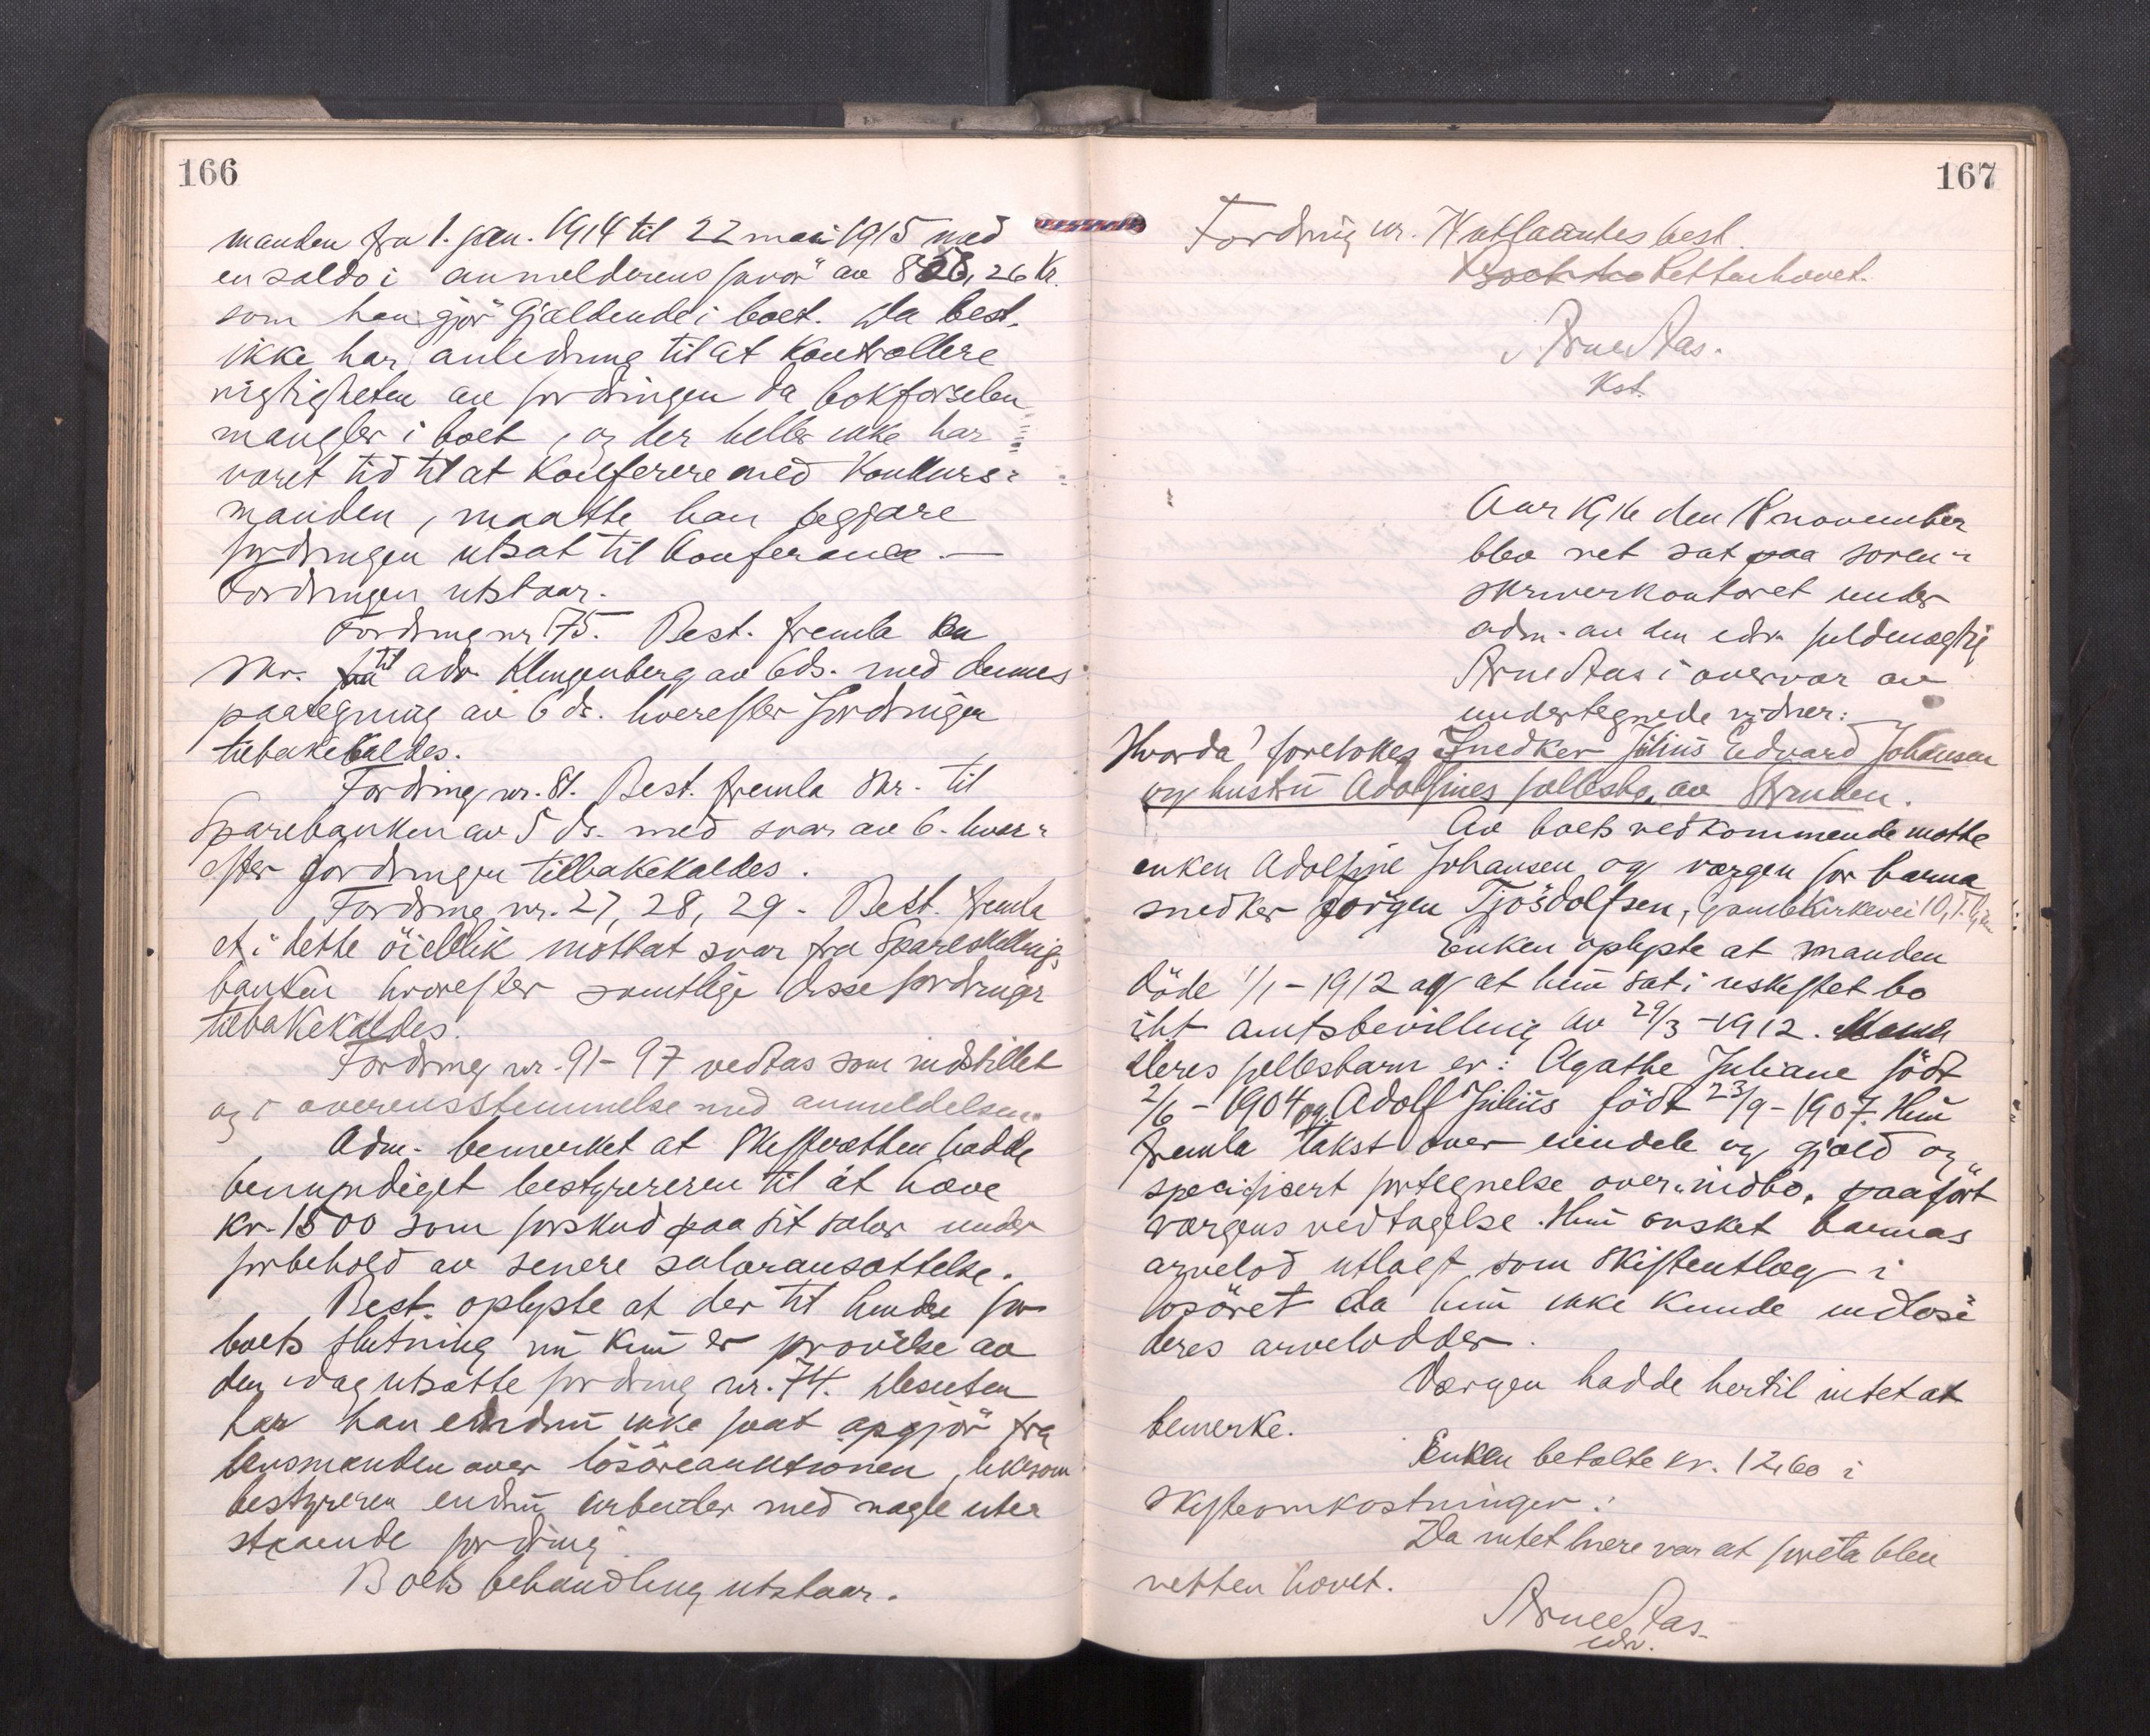 166
manden fra 1. jan. 1914 til 22 mai 1915 med
en saldo i anmelderens favör av 828,26 Kr.
som han gjör gjældende i boet. Da best.
ikke har anledning til at kontrollere
rigtigheten av fordringen da bokførselen
mangler i boet, og der heller ikke har
været tid til at konferere med konkurs-
manden, maatte han begjære
fordringen utsat til konferance.—
Fordringen utstaar.
Fordring nr 75. Best. fremla en
skr. til adv. Klingenberg av 6ds. med dennes
paategning av 6 ds. hvorefter fordringen
tilbakekaldes.
Fordring nr. 81. Best. fremla skr. til
Sparebanken av 5 ds. med svar av 6. hvor-
efter fordringen tilbakekaldes.
Fordring nr. 27, 28, 29. Best. fremla
et i dette öieblik mottat svar fra Spareskillings
banken hvorefter samtlige disse fordringer
tilbakekaldes.
Fordring nr. 91-97 vedtas som indstillet
og i overensstemmelse med anmeldelsen.
Adm. bemerket at skifteretten hadde
bemyndiget bestyrereren til at hæve
kr. 1500 som forskud paa sit salær under
forbehold av senere salæransættelse.
Best. oplyste at der til hinder for
boets slutning nu kun er prövelse av
den idag utsatte fordring nr. 74. Desuten
har han endnu ikke faat opgjör fra
lensmanden over lösöreauktionen, likesom
bestyreren endnu arbeider med nogle ute
staaende fordring
Boets behandling utstaar.
167
Fordring nr.
Retten hævet.
Arne Aas.
Kst.
Aar 1916 den 18 november
blev ret sat paa soren-
skriverkontoret under
adm. av den edsv. fuldmægtig
Arne Aas i overvær av
undertegnede vidner:
Hvorda foretokes Snedker Julius Edvard Johansen
og hustru Adolfines fællesbo, av Strinden.
Av boets vedkommende møtte
enken Adolfine Johansen og værgen for barna
snedker Jörgen Tjösdolfsen, Gamlekirkevei 10,
Enken oplyste at manden
döde 1/1 - 1912 og at hun sat i uskiftet bo
iht amtsbevilling av 29/3 - 1912.
deres fællesbarn er: Agathe Juliane födt
2/6 - 1904 og Adolf Julius födt 23/9 - 1907. Hun
fremla takst over eiendele og gjæld og
specifisert fortegnelse over indbo, paafört
værgens vedtagelse. Hun ønsket barnas
arvelod utlagt som skifteutlæg i
løsöret da hun ikke kunde indløse
deres arvelodder.
Værgen hadde hertil intet at
bemerke.
Enken betalte kr. 12,60 i
skifteomkostninger.
Da intet mere var at foreta blev
retten hævet.
Arne Aas
edsv.